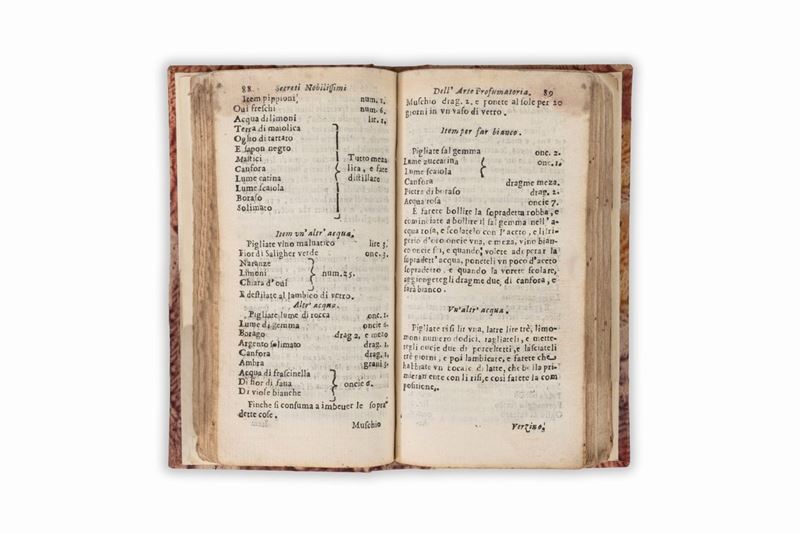 88 Secreti Nobilissimi
Item pippioni num. 1.
Oui freschi num. 6.
Acqua di limoni lit. 1.
Terra di maiolica
Oglio di tartaro
E sapon negro
Mastici Tutto meza
Canfora lica, e fate
Lume catina distillare
Lume scaiola
Boraso
Solimato
Item vn'altr'acqua.
Pigliate vino maluatico lire 3.
Fior di Saligher verde onc. 3.
Naranze
Limoni num. 25.
Chiara d'oui
E destilate al lambico di vetro.
Altr'acqua.
Pigliate lume di rocca onc. 1.
Lume di gemma oncie 6.
Borago drag 2, e mezo
Argento solimato drag. 1.
Canfora drag. 1.
Ambra grani 5.
Acqua di frascinella
Di fior di faua oncie 6.
Di viole bianche
Finche si consuma a imbeuer le sopra
dette cose.
Muschio
Dell'Arte Profumatoria. 89
Muschio drag. 2. e ponete al sole per 20
giorni in vn vaso di vetro.
Item per far bianco.
Pigliate sal gemma onc. 2.
Lume zuccarina onc. 1.
Lume scaiola
Canfora dragme meza.
Pietra di boraso drag. 2.
Acqua rosa oncie 7.
E farete bollire la sopradetta robba, e
cominciate a bollire il sal gemma nell'a-
cqua rosa, e scolatelo con l'aceto, e litri-
gerio d'oro oncie vna, e meza, vino bian-
co oncie sei, e quando volete adoperar la
sopradett'acqua, poneteli vn poco d'aceto
sopradetto, e quando la vorete scolare,
aggiongetegli dragme due, di canfora, e
sarà bianco.
Vn'altr'acqua.
Pigliate risi lir vna, latte lire trè, limo-
moni numero dodici, tagliateli, e mette-
tegli oncie due di porceletti, e lasciateli
trè giorni, e poi lambicare, e farete che
habbiate vn bocale di latte, che bolla pri-
mieramente con li risi, e così farete la com
positione.
Verzino